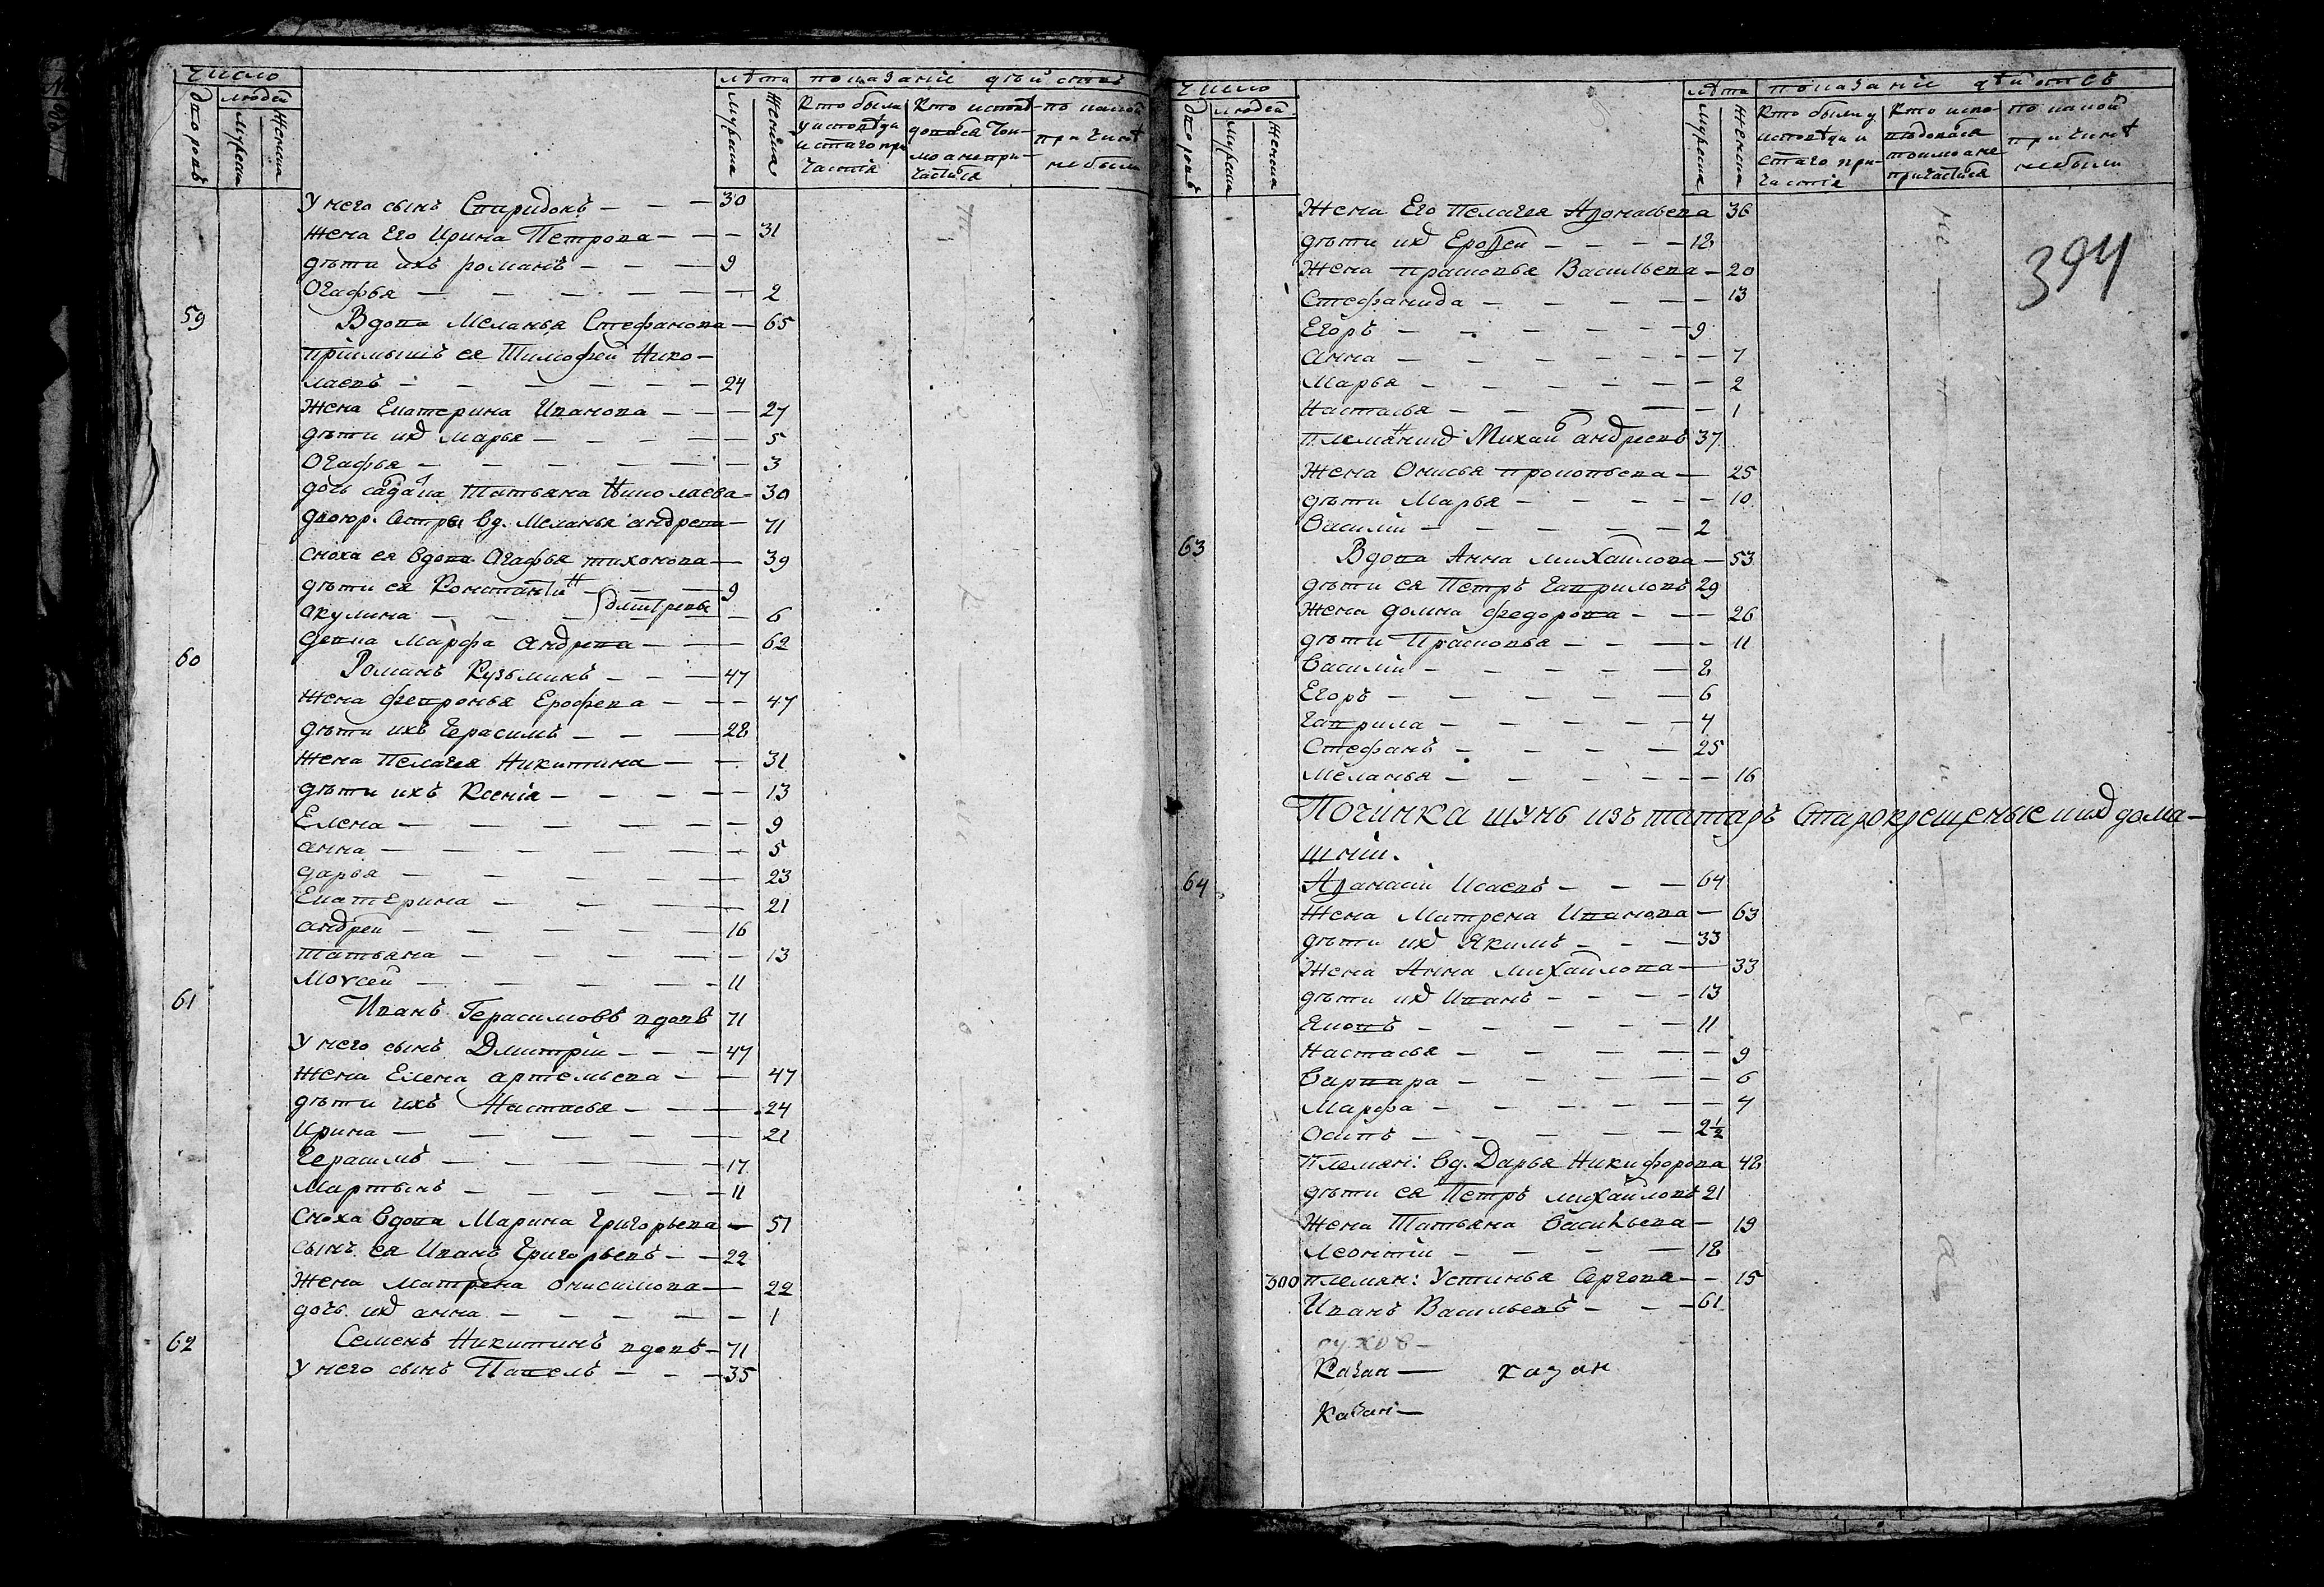 число
дворовъ
людей
мужеска
женска
лѣта
мужеска
женска
показаніе дѣйствъ
Кто были
у исповѣди
и стаго при
частія
Кто исповѣ-
довался ток-
мо а не при-
частился
по какой
причинѣ
не были
У него сынъ Спиридонъ — — — 30
жена Его Ирина Петрова — — — 31
дѣти ихъ романъ — — — 9
Огафья — — — — — — 2
59
Вдова Меланья Стефанова — 65
пріимышъ ея Тимофей Нико-
лаевъ — — — — — — 24
Жена Екатерина Иванова — — — 27
дѣти их Марья — — — — — 5
Огафья — — — — — — 3
дочь Татьяна Николаева — 30
двоюр. сестры вд. Меланья андрева — 71
сноха ея вдова Огафья тихонова — 39
дѣти ея Константин — — — 9
Дмитревы
Акулина — — — — — — 6
девка Марфа андрева — — — 62
60
Романъ Кузьминъ — — — 47
Жена февронья Ерофева — — — 47
дѣти ихъ Герасимъ — — — 28
Жена Пелагея Никитина — — 31
дѣти ихъ Ксенія — — — — — 13
Елена — — — — — — — 9
анна — — — — — — 5
дарья — — — — — — 23
Екатерина — — — — 21
андрей — — — — — — 16
татьяна — — — — — — 13
Моѵсей — — — — — — 11
61
Иванъ Герасимовъ вдовъ 71
У него сынъ Дмитрій — — — 47
Жена Елена артемьева — — 47
дѣти ихъ Настасья — — — 24
Ирина — — — — — — 21
Герасимъ — — — — — — 17
Мартынъ — — — — — — 11
Сноха вдова Марина Григорьева — 51
сынъ ея Иванъ Григорьевъ — — 22
Жена Матрена Онисимова — 22
дочь их анна — — — — — — 1
62
Семенъ Никитинъ вдовъ — 71
У него сынъ Павелъ — — — 35
число
дворовъ
людей
мужеска
женска
лѣта
мужеска
женска
показаніе дѣйствъ
Кто были у
исповѣди и
стаго при-
частія
Кто испо-
вѣдовался
токмо а не
причастился
по какой
причинѣ
не были
394
Жена Его Пелагея Афонасьева 36
дѣти их Ерофей — — — — 18
Жена прасковья Васильева — 20
Стефанида — — — — — 13
Егоръ — — — — — — 9
анна — — — — — — — 7
Марья — — — — — — 2
Настасья — — — — — — 1
племянник Михаил андреевъ 37
Жена Онисья прокопьева — 25
дѣти Марья — — — — — 10
Василій — — — — — 2
63
Вдова Анна михайлова — 53
дѣти ея Петръ Гавриловъ 29
Жена домна федорова — — — 26
дѣти Прасковья — — — — 11
Василій — — — — — 8
Егоръ — — — — — 6
Гаврила — — — — — 4
Стефанъ — — — — 25
Меланья — — — — — — 16
Починка шунь изъ татаръ старокрещеные и их дома-
шніи.
64
Афанасій Исаевъ — — — 64
Жена Матрена Иванова — 63
дѣти их Якимъ — — — 33
Жена Анна михайлова — 33
дѣти их Иванъ — — — — 13
Яковъ — — — — — 11
Настасья — — — — — — 9
Варвара — — — — — — 6
Марфа — — — — — — 4
Осипъ — — — — — 2½
Племян: вд. Дарья Никифорова 48
дѣти ея Петръ михайловъ 21
Жена Татьяна васильева — 19
Леонтій — — — — 18
300 племян: Устинья Сергева — — 15
Иванъ Васильевъ — — — 61
Казан — казан
Казан —